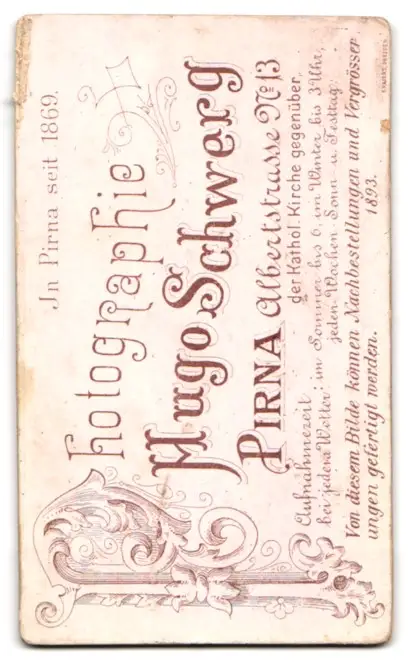 Jn Pirna seit 1869.
Photographie
Hugo Schwerg
PIRNA Albertstrasse No 13
der Kathol. Kirche gegenüber.
Aufnahmezeit
bei jedem Wetter: im Sommer bis 6, im Winter bis 3 Uhr,
jeden Wochen- Sonn- u. Festtag.
Von diesem Bilde können Nachbestellungen und Vergrösser
ungen gefertigt werden.
1893.